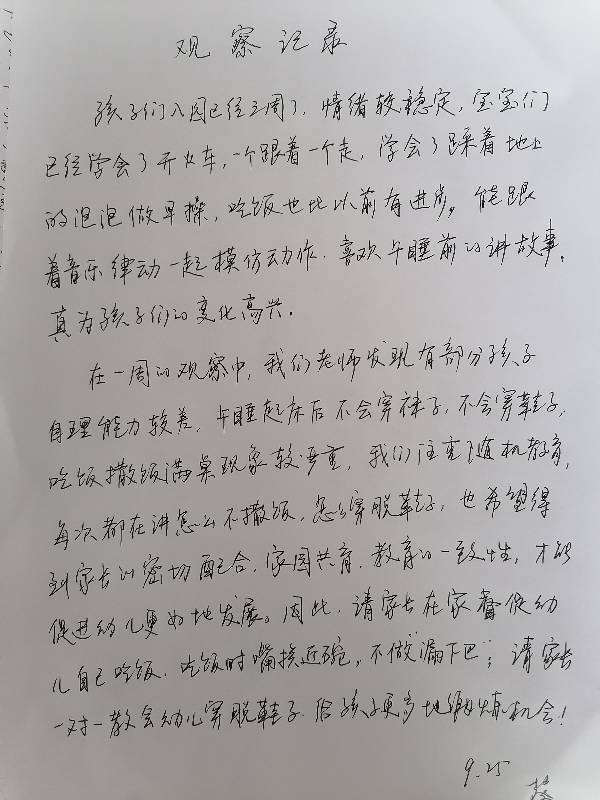 观察记录
孩子们入园已经三周了，情绪较稳定，宝宝们
已经学会了开火车，一个跟着一个走，学会了踩着地上
的泡泡做早操，吃饭也比以前有进步。能跟
着音乐律动一起模仿动作。喜欢午睡前的讲故事。
真为孩子们的变化高兴。
在一周的观察中，我们老师发现有部分孩子
自理能力较差，午睡起床后不会穿裤子，不会穿鞋子，
吃饭撒饭满桌现象较严重，我们注重随机教育，
每次都在讲怎么不撒饭，怎么穿脱鞋子，也希望得
到家长的密切配合，家园共育，教育的一致性，才能
促进幼儿更好地发展。因此，请家长在家督促幼
儿自己吃饭。吃饭时嘴接近碗，不做“漏下巴”；请家长
一对一教会幼儿穿脱鞋子，给孩子更多地锻炼机会！
9.25